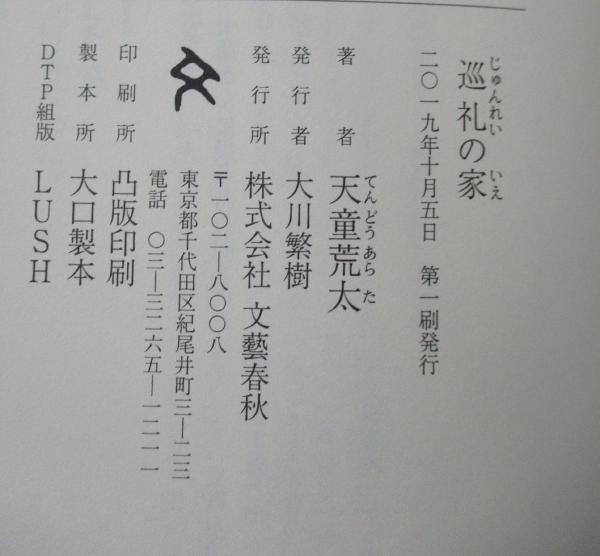 巡礼の家
じゅんれい いえ
二〇一九年十月五日 第一刷発行
著者 天童荒太
てんどう あらた
発行者 大川繁樹
発行所 株式会社 文藝春秋
〒一〇二―八〇〇八
東京都千代田区紀尾井町三―二三
電話 〇三―三二六五―一二一一
印刷所 凸版印刷
製本所 大口製本
DTP組版 LUSH